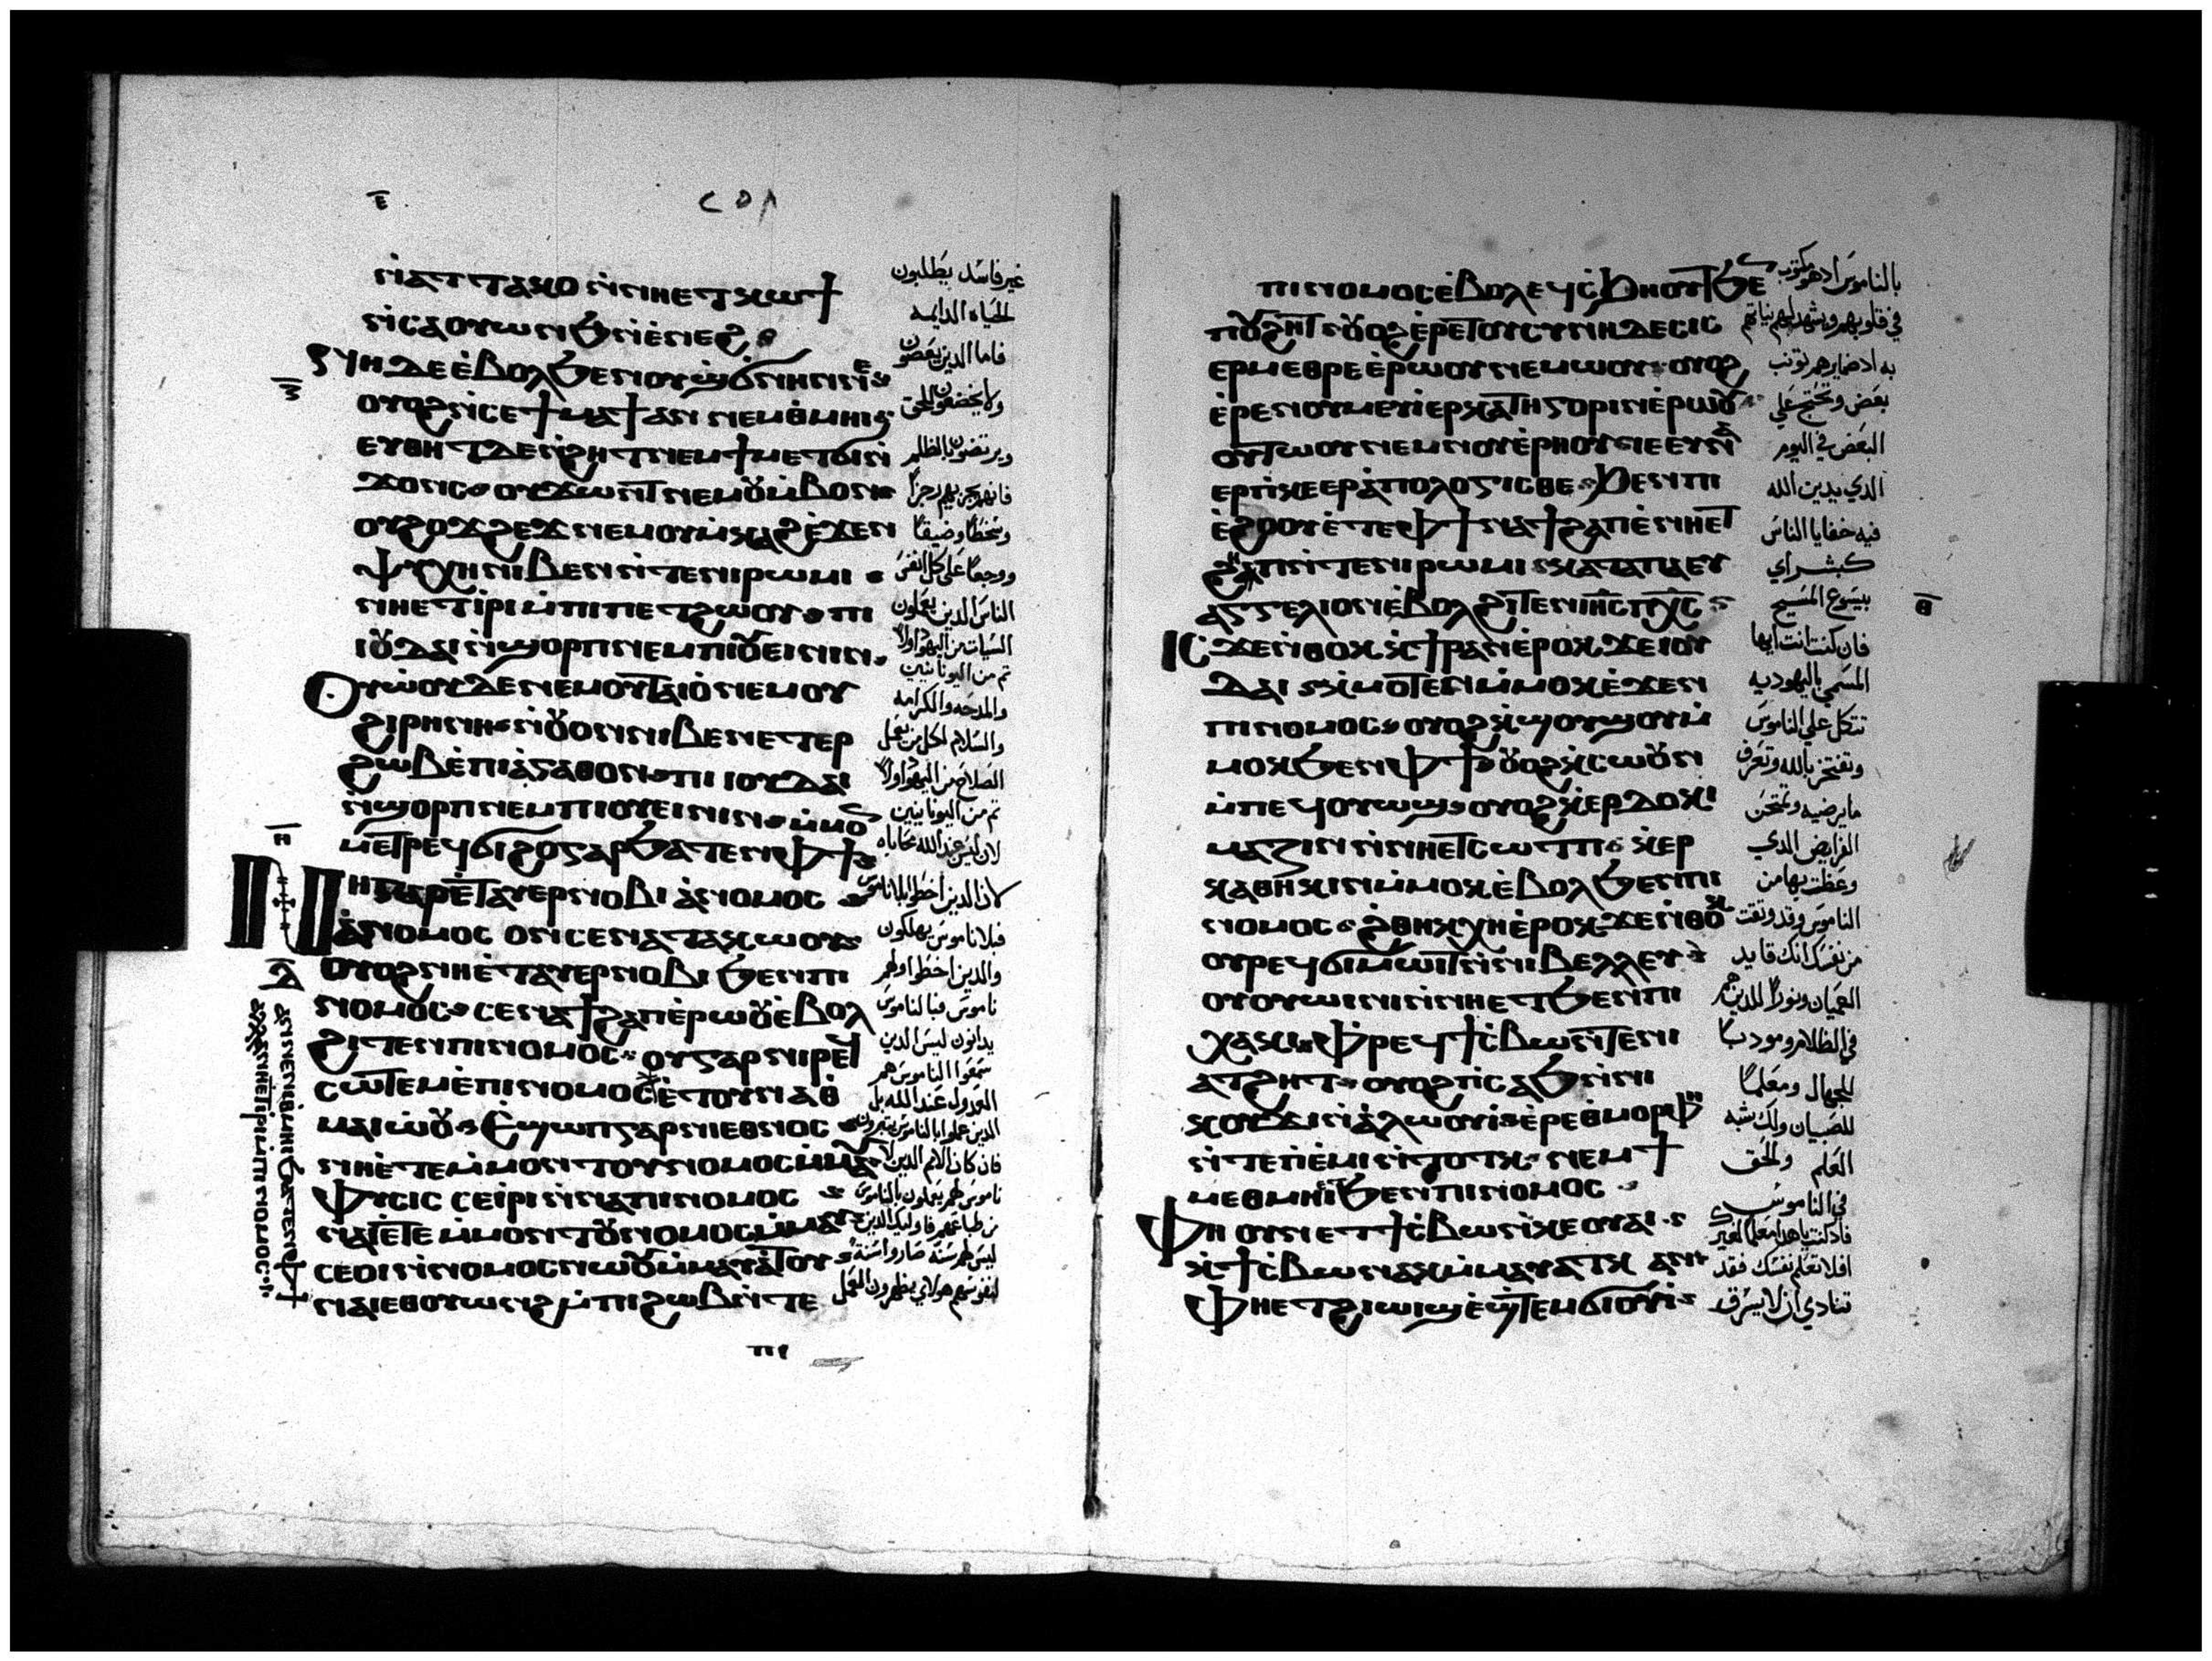 ⲉ
ⲛ̀ⲁⲧⲧⲁⲕⲟ ⲛ̀ⲛⲏⲉⲧⲕⲱϯ
ⲛ̀ⲥⲁⲟⲩⲱⲛϧ ⲛ̀ⲉⲛⲉϩ
ⲟⲩⲟϩ ⲛ̀ⲥⲉϯⲙⲁϯ ⲁⲛ ⲛⲉⲙ ⲑⲙⲏⲓ
ⲉⲩⲑⲏⲧ ⲇⲉ ⲛ̀ϩⲏⲧ ⲛⲉⲙ ϯⲙⲉⲧϭⲓⲛ
ϫⲟⲛⲥ ⲟⲩϫⲱⲛⲧ ⲛⲉⲙ ⲟⲩⲙ̀ⲃⲟⲛ
ⲟⲩϩⲟϫϩⲉϫ ⲛⲉⲙ ⲟⲩⲙ̀ⲕⲁϩ ⲉ̀ϫⲉⲛ
ⲯⲩⲭⲏ ⲛⲓⲃⲉⲛ ⲛ̀ⲧⲉ ⲛⲓⲣⲱⲙⲓ
ⲛⲏⲉⲧⲓⲣⲓ ⲙ̀ⲡⲓⲡⲉⲧϩⲱⲟⲩ ⲡⲓ
ⲓⲟⲩⲇⲁⲓ ⲛ̀ϣⲟⲣⲡ ⲛⲉⲙ ⲡⲓⲟⲩⲉⲓⲛⲓⲛ
ⲟⲩⲱ̀ⲟⲩ ⲇⲉ ⲛⲉⲙ ⲟⲩⲧⲁⲓⲟ̀ ⲛⲉⲙ ⲟⲩ
ϩⲓⲣⲏⲛⲏ ⲛ̀ⲟⲩⲟⲛ ⲛⲓⲃⲉⲛ ⲉⲧⲉⲣ
ϩⲱⲃ ⲉ̀ⲡⲓⲁ̀ⲅⲁⲑⲟⲛ ⲡⲓⲓⲟⲩⲇⲁⲓ
ⲛ̀ϣⲟⲣⲡ ⲛⲉⲙ ⲡⲓⲟⲩⲉⲓⲛⲓⲛ ⲙ̀ⲙⲟⲛ
ⲙⲉⲧⲣⲉϥϭⲓϩⲟ ⲅⲁⲣ ϧⲁⲧⲉⲛ ⲫϯ
ⲛⲏ ⲅⲁⲣ ⲉⲧⲁⲩⲉⲣⲛⲟⲃⲓ ⲁ̀ⲛⲟⲙⲟⲥ
ⲁ̀ⲛⲟⲙⲟⲥ ⲟⲛ ⲥⲉⲛⲁⲧⲁⲕⲱⲟⲩ
ⲟⲩⲟϩ ⲛⲏ ⲉ̀ⲧⲁⲩⲉⲣⲛⲟⲃⲓ ϧⲉⲛ ⲡⲓ
ⲛⲟⲙⲟⲥ ⲥⲉⲛⲁϯϩⲁⲡ ⲉ̀ⲣⲱⲟⲩ ⲉ̀ⲃⲟⲗ
ϩⲓⲧⲉⲛ ⲡⲓⲛⲟⲙⲟⲥ ⲟⲩ ⲅⲁⲣ ⲛⲓⲣⲉϥ
ⲥⲱⲧⲉⲙ ⲉ̀ⲡⲓⲛⲟⲙⲟⲥ ⲉ̀ⲧⲟⲩⲛⲁⲑ
ⲙⲁⲓⲱ̀ⲟⲩ ⲉ̀ϣⲱⲡ ⲅⲁⲣ ⲛⲓⲉⲑⲛⲟⲥ
ⲛⲏ ⲉ̀ⲧⲉ ⲙ̀ⲙⲟⲛⲧⲟⲩ ⲛⲟⲙⲟⲥ ⲙ̀ⲙⲁⲩ
ⲫⲩⲥⲓⲥ ⲥⲉⲓ̀ⲣⲓ ⲛ̀ⲛⲁ ⲡⲓⲛⲟⲙⲟⲥ
ⲛⲁⲓ ⲉ̀ⲧⲉ ⲙ̀ⲙⲟⲛⲧⲟⲩ ⲛⲟⲙⲟⲥ ⲙ̀ⲙⲁⲩ
ⲥⲉⲟⲓ ⲛ̀ⲛⲟⲙⲟⲥ ⲛⲱⲟⲩ ⲙ̀ⲙⲁⲩⲁⲧⲟⲩ
ⲛⲁⲓ ⲉⲑⲟⲩⲱⲛϩ ⲙ̀ⲡⲓϩⲱⲃ ⲛ̀ⲧⲉ
ⲡⲓ
غير فاسد يطلبون
الحياه الدايمه
فاما الذين يعصون
ولا يخضعون للحق
ويرتضون بالظلم
وسخطا وضيقا
ووجعا على كل انفس
الناس الذين يعملون
السيات من اليهود اولا
ثم من اليونانيين
والمدحه والكرامه
والسلام لكل من يعمل
الصلاح من اليهود اولا
ثم من اليونانيين
لان ليس عند الله محاباه
لان الذين اخطوا بلا ناموس
فبلا ناموس يهلكون
والذين اخطوا ولهم
ناموس فبالناموس
يدانون ليس الذين
سمعوا الناموس هم
ⲡⲓⲛⲟⲙⲟⲥ ⲉ̀ⲃⲟⲗ ⲉϥⲥϧⲏⲟⲩⲧ ϧⲉⲛ
ⲡⲟⲩϩⲏⲧ ⲟⲩⲟϩ ⲉ̀ⲣⲉ ⲧⲟⲩⲥⲩⲛⲏⲇⲉⲥⲓⲥ
ⲉⲣⲙⲉⲑⲣⲉ ⲉ̀ⲣⲱⲟⲩ ⲛⲉⲙⲱⲟⲩ ⲟⲩⲟϩ
ⲉ̀ⲣⲉ ⲛⲟⲩⲙⲉⲩⲓ̀ ⲉⲣⲕⲁⲧⲏⲅⲟⲣⲓⲛ ⲉ̀ⲣⲱⲟⲩ
ⲟⲩⲧⲱⲟⲩ ⲛⲉⲙ ⲛⲟⲩⲉ̀ⲣⲏⲟⲩ ⲓⲉ ⲉⲩⲛⲁ
ⲉⲣⲡⲕⲉⲉⲣⲁ̀ⲡⲟⲗⲟⲅⲓⲥⲑⲉ ϧⲉⲛ ⲡⲓ
ⲉ̀ϩⲟⲟⲩ ⲉ̀ⲧⲉⲣⲉ ⲫϯ ⲛⲁϯϩⲁⲡ ⲉ̀ⲛⲏⲉⲧ
ϩⲏⲡ ⲛ̀ⲧⲉ ⲛⲓⲣⲱⲙⲓ ⲕⲁⲧⲁ ⲡⲁⲉⲩ
ⲁⲅⲅⲉⲗⲓⲟⲛ ⲉ̀ⲃⲟⲗ ϩⲓⲧⲉⲛ ⲓⲏⲥ ⲡⲭⲥ
ⲓⲥϫⲉ ⲛ̀ⲑⲟⲕ ⲕ̀ϯⲣⲁⲛ ⲉ̀ⲣⲟⲕ ϫⲉ ⲓⲟⲩ
ⲇⲁⲓ ⲕ̀ⲙⲟⲧⲉⲛ ⲙ̀ⲙⲟⲕ ⲉ̀ϫⲉⲛ
ⲡⲓⲛⲟⲙⲟⲥ ⲟⲩⲟϩ ⲕ̀ϣⲟⲩϣⲟⲩ ⲙ̀
ⲙⲟⲕ ϧⲉⲛ ⲫϯ ⲟⲩⲟϩ ⲕ̀ⲥⲱⲟⲩⲛ
ⲙ̀ⲡⲉϥⲟⲩⲱϣ ⲟⲩⲟϩ ⲕ̀ⲉⲣⲇⲟⲕⲓ
ⲙⲁⲍⲓⲛ ⲛ̀ⲛⲏⲉⲧⲥⲱⲧⲡ ⲕ̀ⲉⲣ
ⲕⲁⲑⲏⲕⲓⲛ ⲙ̀ⲙⲟⲕ ⲉ̀ⲃⲟⲗ ϧⲉⲛ ⲡⲓ
ⲛⲟⲙⲟⲥ ϩ̀ⲑⲏⲕ ⲭⲏ ⲉ̀ⲣⲟⲕ ϫⲉ ⲛ̀ⲑⲟⲕ
ⲟⲩⲣⲉϥϭⲓⲙⲱⲓⲧ ⲛ̀ⲛⲓⲃⲉⲗⲗⲉⲩ
ⲟⲩⲟⲩⲱⲓⲛⲓ ⲛ̀ⲛⲏⲉⲧϧⲉⲛ ⲡⲓ
ⲭⲁⲕⲓ ⲫⲣⲉϥϯⲥ̀ⲃⲱ ⲛ̀ⲧⲉ ⲛⲓ
ⲁⲧϩⲏⲧ ⲟⲩⲟϩ ⲡⲓⲥⲁϧ ⲛ̀ⲛⲓ
ⲕⲟⲩϫⲓ ⲛ̀ⲁ̀ⲗⲱⲟⲩⲓ̀ ⲉ̀ⲣⲉ ⲑⲙⲟⲣⲫⲏ
ⲛ̀ⲧⲉ ⲡⲉ̀ⲙⲓ ⲛ̀ⲧⲟⲧⲕ ⲛⲉⲙ ϯ
ⲙⲉⲑⲙⲏⲓ ϧⲉⲛ ⲡⲓⲛⲟⲙⲟⲥ
ⲫⲏ ⲟⲩⲛ ⲉⲧϯⲥ̀ⲃⲱ ⲛ̀ⲕⲉⲟⲩⲁⲓ
ⲕ̀ϯⲥ̀ⲃⲱ ⲛⲁⲕ ⲙ̀ⲙⲁⲩⲁⲧⲕ ⲁⲛ
ⲫⲏⲉⲧϩⲓⲱⲓϣ ⲉ̀ϣⲧⲉⲙϭⲓⲟⲩⲓ̀
ⲑ
بالناموس اذ هو مكتوب
في قلوبهم ويشهد لهم نياتهم
به اذ ضمايرهم تونب
بعض وتحتج على
البعض في اليوم
الذي يدين الله
فيه خفايا الناس
كبشراي
بيسوع المسيح
فان كنت انت ايها
المسمي باليهوديه
تتكل على الناموس
وتفتخر بالله وتعرف
ما يرضيه وتمتحن
الفرايض الذي
وعظت بها من
الناموس وقد وثقت
من نفسك انك قايد
العميان ونورا للذين هم
في الظلام ومودبا
للجهال ومعلما
للصبيان ولك شبه
العلم والحق
في الناموس
افلا تعلم نفسك فقد
تنادي ان لا يسرق